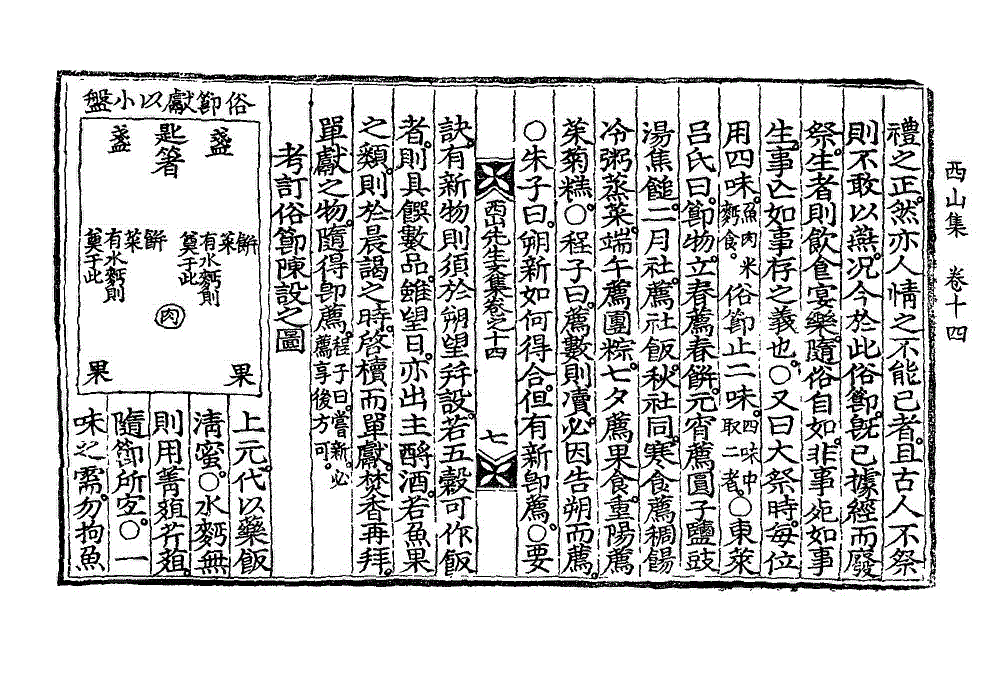 西山集　卷十四
禮之正。然亦人情之不能已者。且古人不祭
則不敢以燕。況今於此俗節。旣已據經而廢
祭。生者則飮食宴樂。隨俗自如。非事死如事
生。事亡如事存之義也。○又曰大祭時。每位
用四味。魚肉米麪食。俗節止二味。四味中取二者。○東萊
呂氏曰。節物。立春薦春餠。元宵薦圓子鹽豉
湯焦䭔。二月社。薦社飯。秋社同。寒食薦稠餳
冷粥蒸菜。端午薦團粽。七夕薦果食。重陽薦
茱菊糕。○程子曰。薦數則瀆。必因告朔而薦。
○朱子曰。朔新如何得合。但有新卽薦。○要
西山先生文集卷之十四
七
訣。有新物則須於朔望幷設。若五穀可作飯
者。則具饌數品。雖望日。亦出主酹酒。若魚果
之類。則於晨謁之時。啓櫝而單獻。焚香再拜。
單獻之物。隨得卽薦。程子曰嘗新。必薦享後方可。
考訂俗節陳設之圖
俗節獻以小盤
盞
匙箸
盞
餠
菜
有水麪則
奠于此
餠
菜
有水麪則
奠于此
肉
果
果
上元。代以藥飯
淸蜜。○水麪無
則用菁殽芹殽。
隨節所宜。○一
味之需。勿拘魚